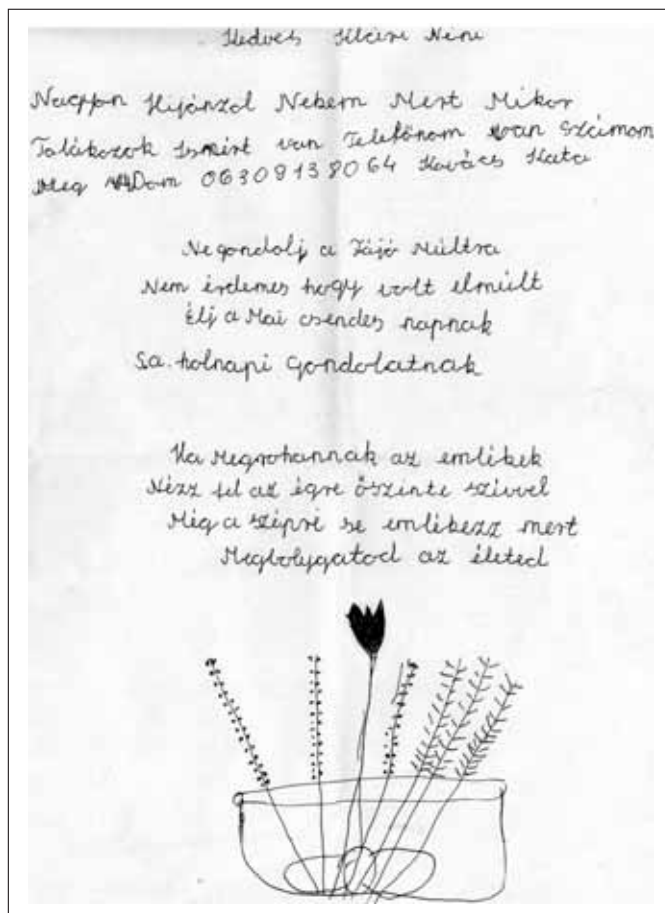 Kedves Klári Néni
Nagyon Hijánzol Nekem Mert Mikor
Talákozok Ismért van Telefónom van Számom
Meg Dom 06309138064 Kovács Kata
Negondolj a Fájó Múltra
Nem érdemes hogy volt elmúlt
Élj a Mai csendes napnak
S a holnapi Gondolatnak
Ha Megrohannak az emlékek
Nézz fel az égre őszinte szívvel
Még a szépré se emlékezz mert
Megbolygatod az életed